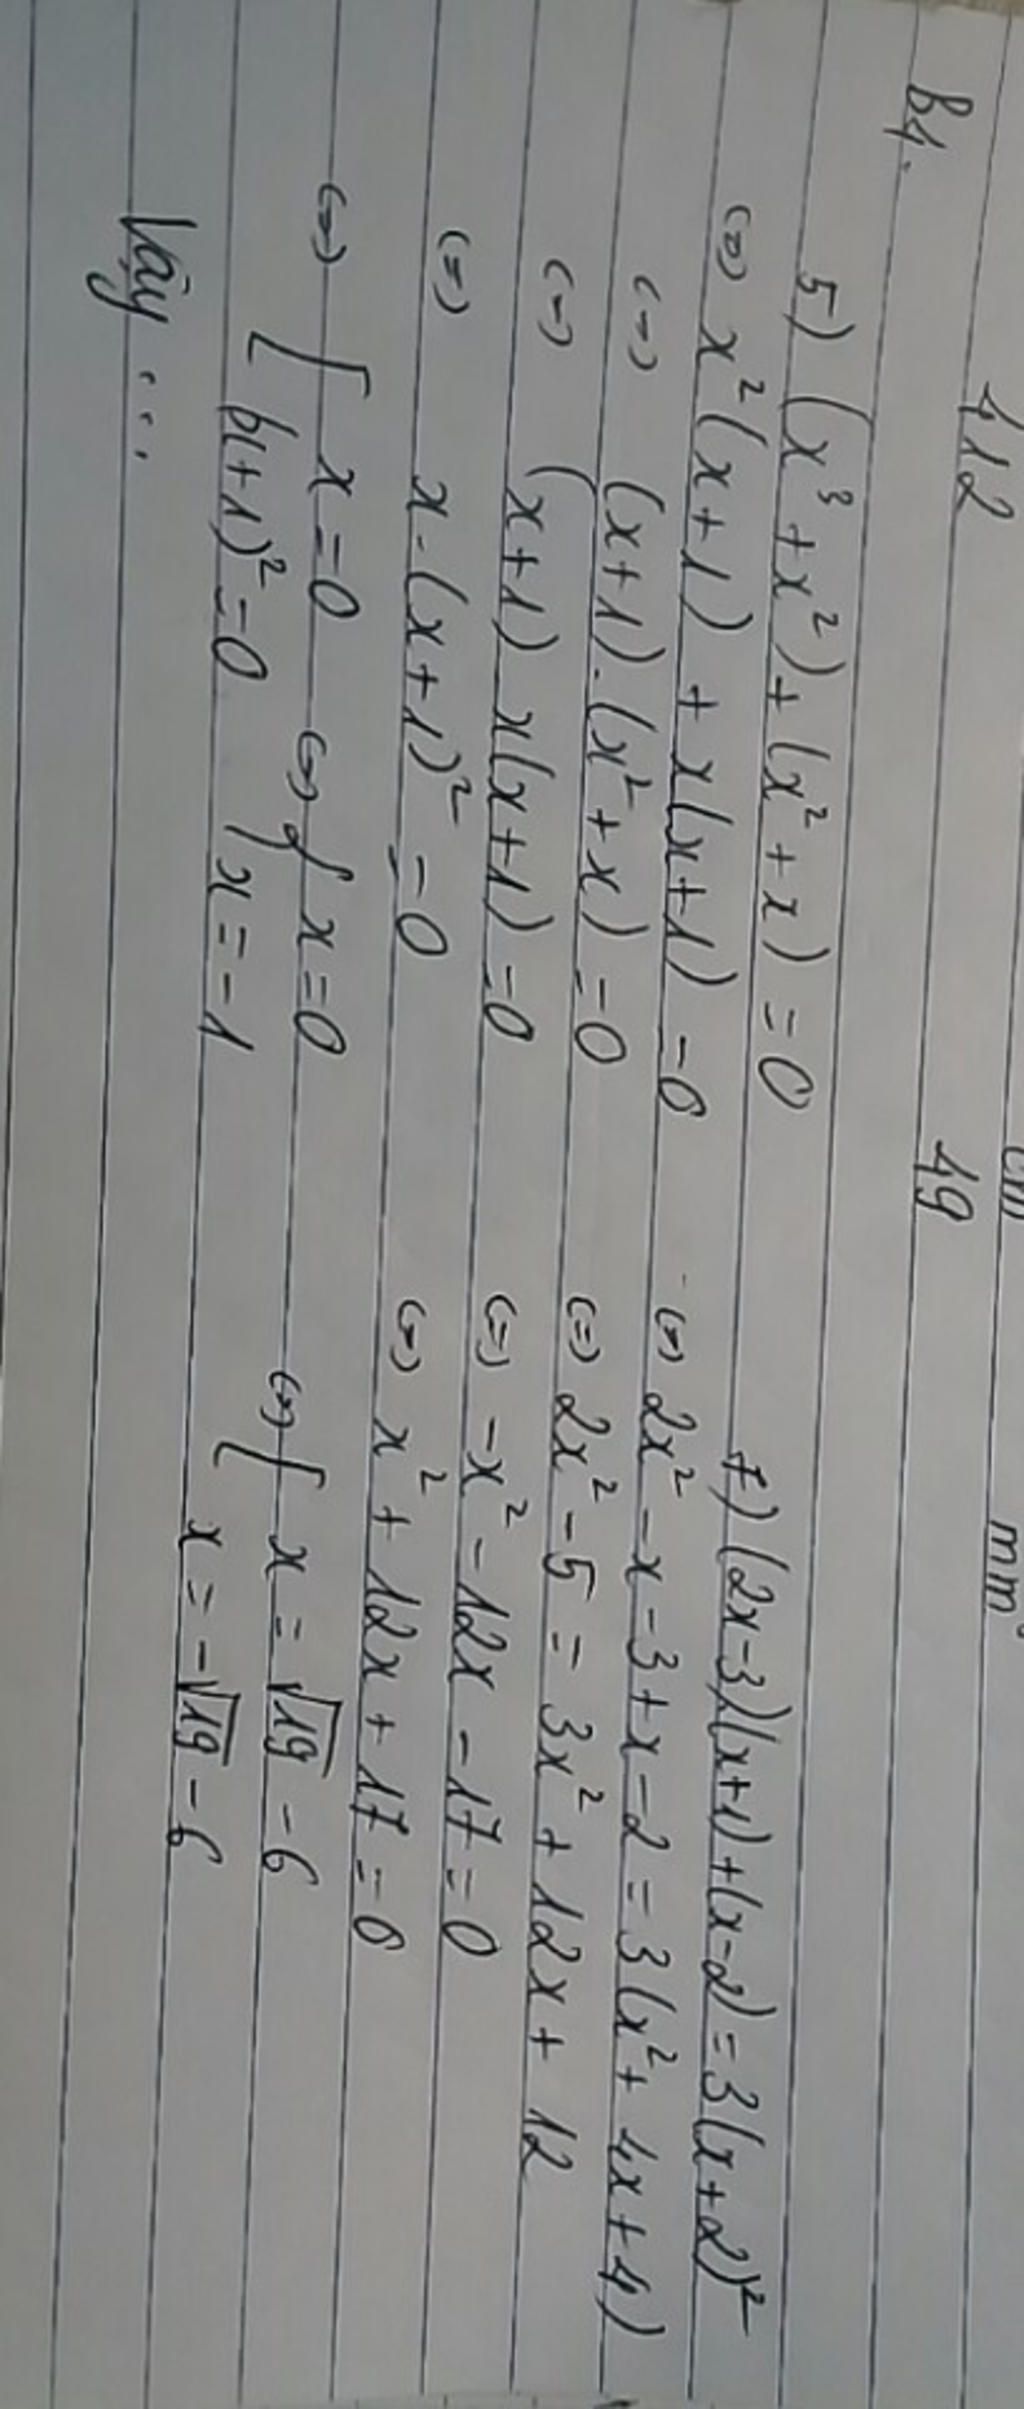 cm
mm³
412
19
B4.
5) (x³ + x²) + (x² + x) = 0
(=) x² (x + 1) + x(x+1) = 0
(=) (x+1) . (x² + x) = 0
(=) (x+1) x(x+1) = 0
(=) x . (x+1)² = 0
(=) [ x = 0 (=) [ x = 0
(x+1)² = 0 x = -1
Vậy ...
7) (2x-3)(x+1)+(x-2) = 3(x+2)²
(=) 2x² - x - 3 + x - 2 = 3(x² + 4x + 4)
(=) 2x² - 5 = 3x² + 12x + 12
(=) -x² - 12x - 17 = 0
(=) x² + 12x + 17 = 0
(=) [ x = √19 - 6
x = -√19 - 6